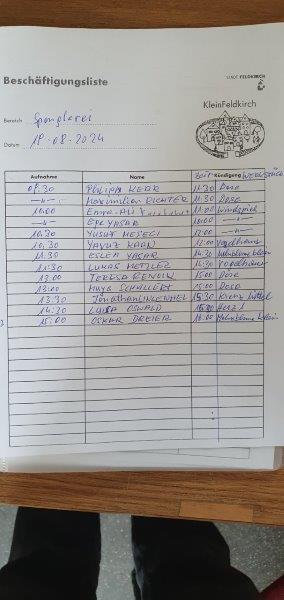 STADT FELDKIRCH
Beschäftigungsliste
KleinFeldkirch
Bereich Spenglerei
Datum 19.08.2024
Aufnahme Name Zeit Kündigung WERKSTÜCK
09.30 PHILIPP KERR 11:30 Dose
-"- MAXIMILIAN RICHTER 11:30 Dose
10:00 EMRE-ALI 11:00 Windspiel
-"- Efe YASAR 10:00 -"-
10.30 YUSUF 12:00 -"-
10.30 YAVUZ KAAN 12:00 Vogelhaus
11.30 ESLEM YASAR 14:30
11:30 LUKAS HETZLER 14:30 Vogelhaus
13.00 TERESA 15:00 Dose
13:00 MAYA SCHALLERT 15:00 Dose
13:30 Jonathan 15:30
14:30 LUISA OSWALD Herz
15:00 OSKAR DREIER 16:00